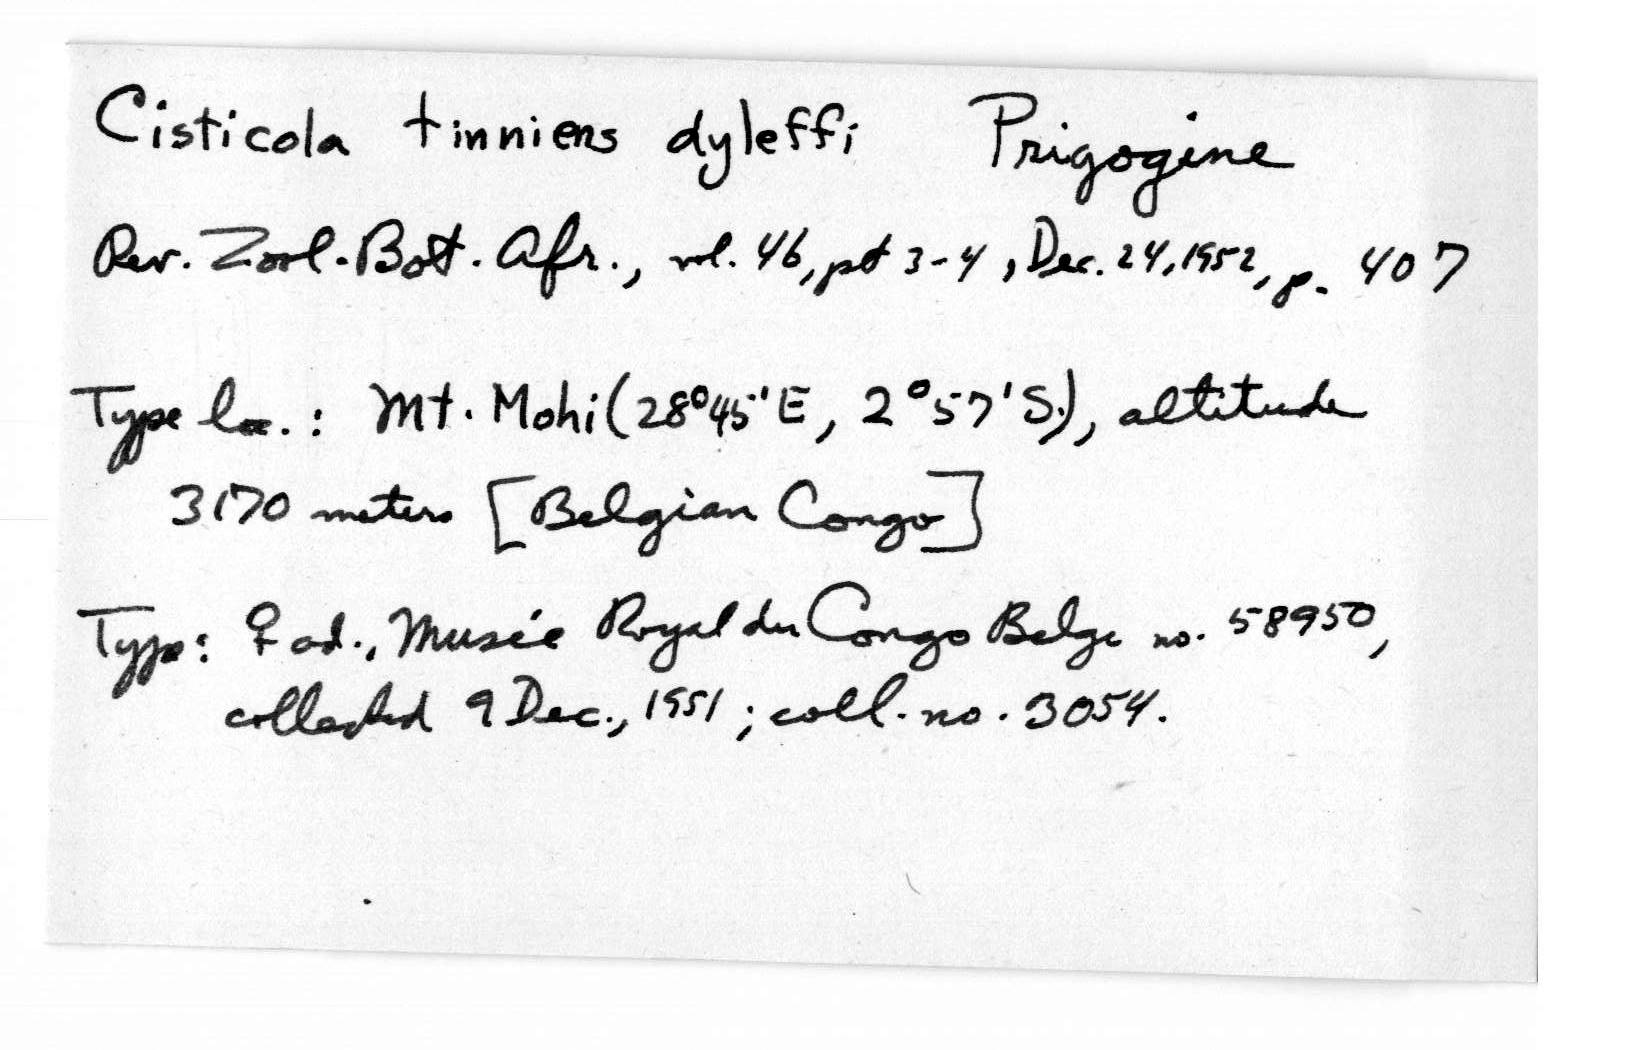 Cisticola tinniens dyleffi Prigogine
Rev. Zool. Bot. Afr., vol. 46, pt 3-4, Dec. 24, 1952, p. 407
Type loc.: Mt. Mohi (28°45'E, 2°57'S.), altitude
3170 meters [Belgian Congo]
Type: ♀ ad., Musée Royal du Congo Belge no. 58950,
collected 9 Dec., 1951; coll. no. 3054.